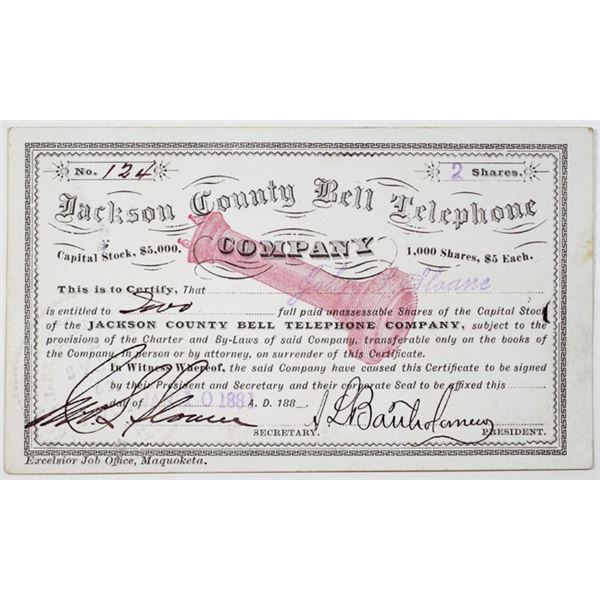 No. 124
2 Shares.
Jackson County Bell Telephone
COMPANY
Capital Stock, $5,000.
1,000 Shares, $5 Each.
This is to Certify, That John Sloane
is entitled to Two full paid unassessable Shares of the Capital Stoc
of the JACKSON COUNTY BELL TELEPHONE COMPANY, subject to the
provisions of the Charter and By-Laws of said Company transferable only on the books of
the Company, in person or by attorney, on surrender of this Certificate.
In Witness Whereof, the said Company have caused this Certificate to be signed
by their President and Secretary and their corporate Seal to be affixed this
day of 0 1881 A. D. 188
A L Bartholomew
SECRETARY.
PRESIDENT.
Excelsior Job Office, Maquoketa.